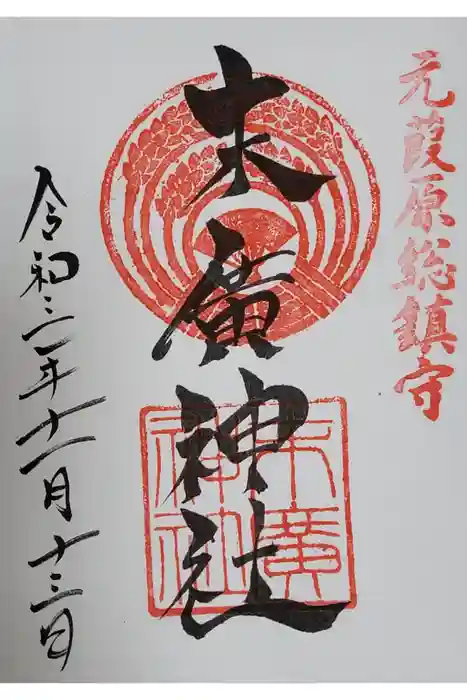 元葭原総鎮守
末廣神社
末廣神社
令和三年十一月十三日